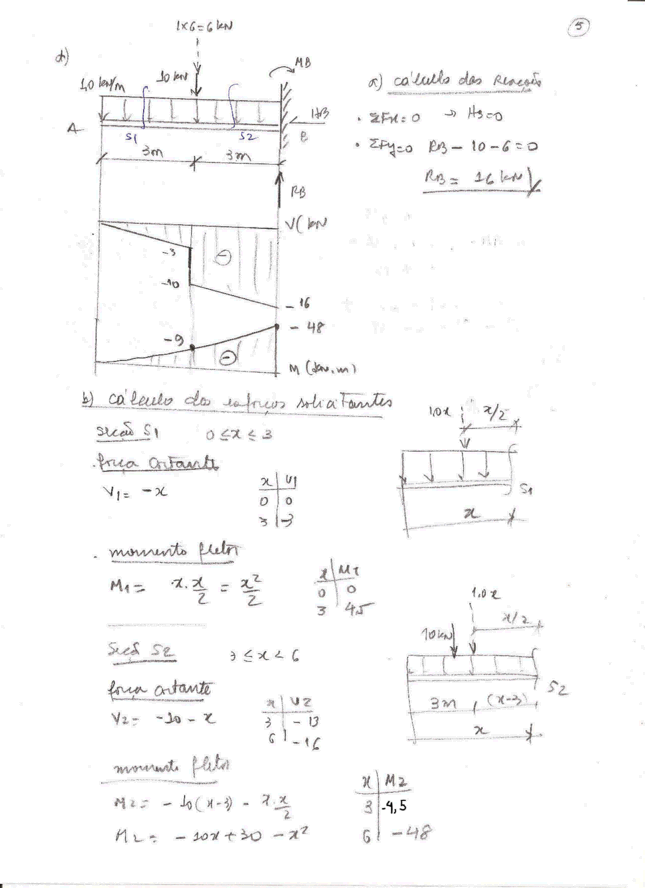 5
1x6=6kN
d)
MB
1,0 kN/m
10 kN
HB
A
S1
S2
B
3m
3m
RB
a) cálculo das reações
• ΣFx=0 → HB=0
• ΣFy=0 RB - 10 - 6 = 0
RB = 16 kN
V(kN
-3
-10
- 16
- 48
-9
M (kN.m)
b) cálculo dos esforços solicitantes
seção S1 0 ≤ x ≤ 3
1,0x x/2
S1
x
. força cortante
V1 = -x
x V1
0 0
3 -3
. momento fletor
M1 = x.x/2 = x²/2
x M1
0 0
3 4,5
Seção S2 3 ≤ x < 6
1,0x
x/2
10kN
S2
3m (x-3)
x
força cortante
V2 = -10 - x
x V2
3 - 13
6 -16
momento fletor
M2 = - 10(x-3) - x.x/2
M2 = - 10x + 30 - x²
x M2
3 -4,5
6 -48